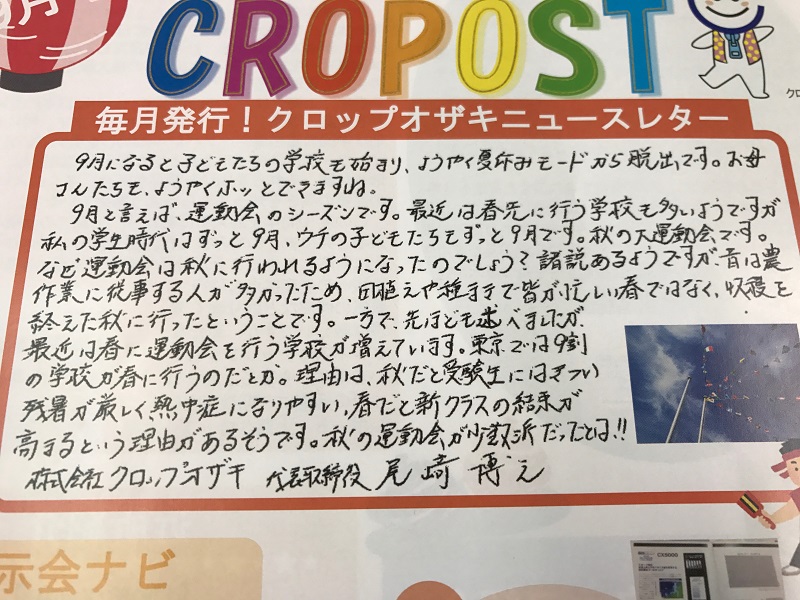 9月
CROPOST
クロ
毎月発行!クロップオザキニュースレター
9月になると子どもたちの学校も始まり、ようやく夏休みモードから脱出です。お母
さんたちも、ようやくホッとできますね。
9月と言えば、運動会のシーズンです。最近は春先に行う学校も多いようですが
私の学生時代はずっと9月、ウチの子どもたちもずっと9月です。秋の大運動会です。
なぜ運動会は秋に行われるようになったのでしょう?諸説あるようですが、昔は農
作業に従事する人が多かったため、田植えや種まきで皆が忙しい春ではなく、収穫を
終えた秋に行ったということです。一方で、先ほども述べましたが、
最近は春に運動会を行う学校が増えています。東京では9割
の学校が春に行うのだとか。理由は、秋だと受験生にはきつい
残暑が厳しく熱中症になりやすい、春だと新クラスの結束が
高まるという理由があるそうです。秋の運動会が少数派だったとは!!
株式会社クロップオザキ 代表取締役 尾崎 博之
示会ナビ
CX5000